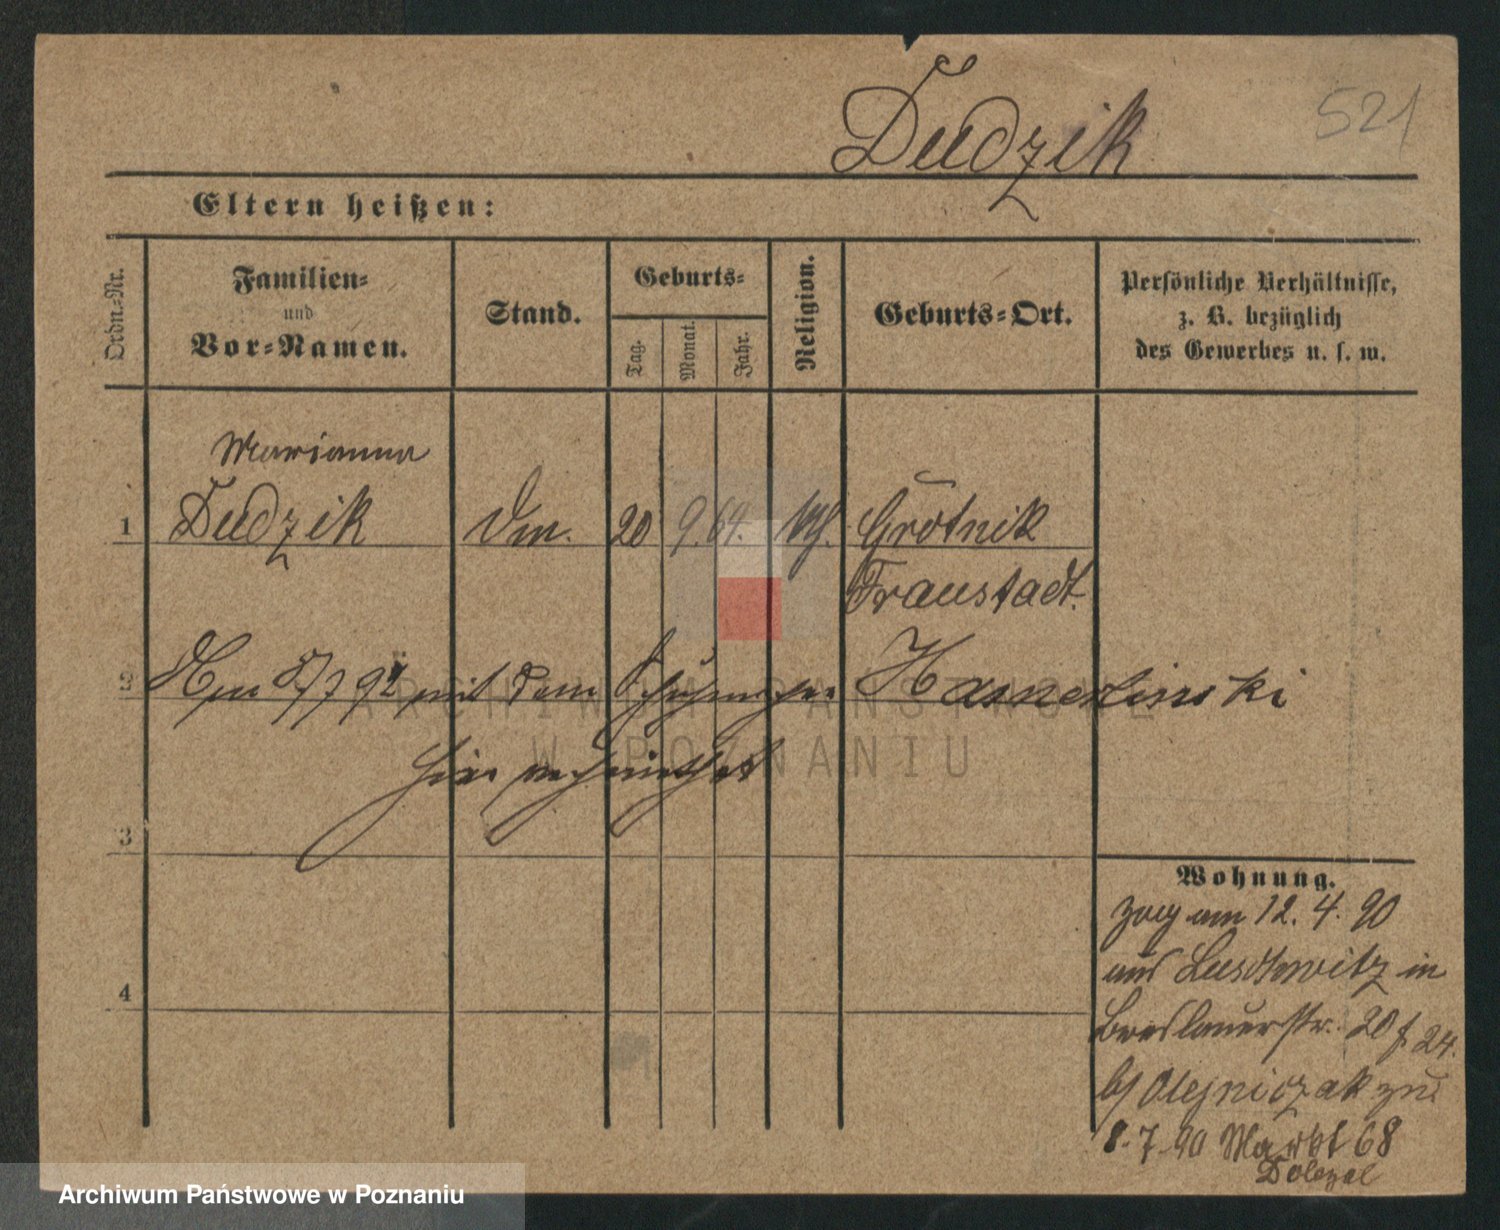 Dudzik
521
Eltern heißen:
Ordn.-Nr.
Familien-
und
Vor-Namen.
Stand.
Geburts-
Tag.
Monat.
Jahr.
Religion.
Geburts-Ort.
Persönliche Verhältnisse,
z. B. bezüglich
des Gewerbes u. s. w.
Marianna
1 Dudzik 20 9. 64. Grotnik
Fraustadt.
2 Am 8/7 92 mit dem
hier verheirathet
3
4
Wohnung.
Zug am 12. 4. 90
aus Luschwitz in
Breslauerstr. 20 24.
b/ Olejniczak zu
8. 7. 90 Markt 68
Dolezal
ARCHIWUM PAŃSTWOWE
W POZNANIU
Archiwum Państwowe w Poznaniu